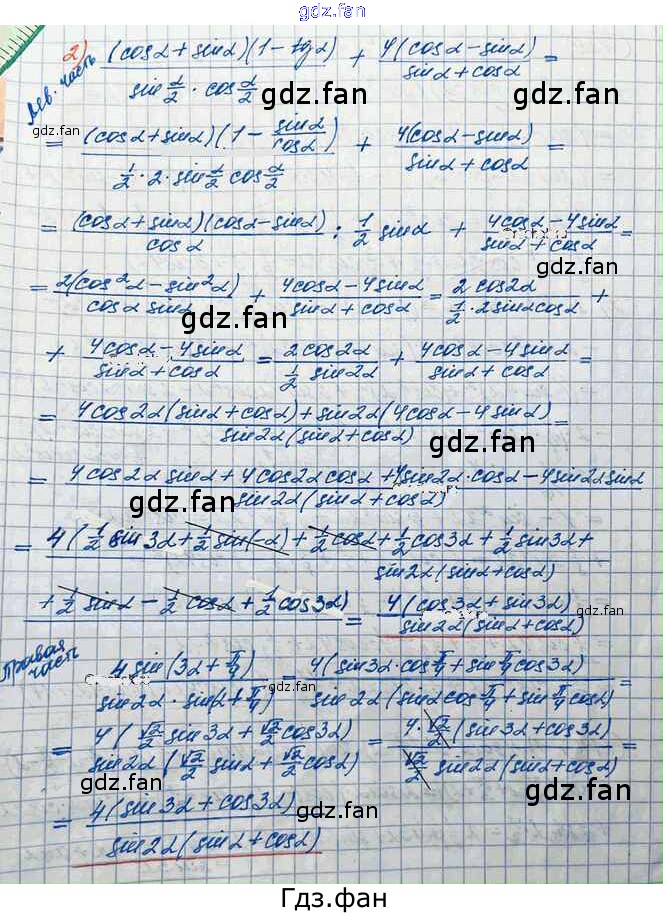 gdz.fan
2) (cosα + sinα)(1 - tgα) / sin α/2 · cos α/2 + 4(cosα - sinα) / sinα + cosα =
Лев. часть
gdz.fan gdz.fan
= (cosα + sinα)(1 - sinα/cosα) / 1/2 · 2 · sin α/2 cos α/2 + 4(cosα - sinα) / sinα + cosα =
= (cosα + sinα)(cosα - sinα) / cosα : 1/2 sinα + 4cosα - 4sinα / sinα + cosα =
gdz.fan
= 2(cos²α - sin²α) / cosα sinα + 4cosα - 4sinα / sinα + cosα = 2cos2α / 1/2 · 2sinαcosα +
gdz.fan
+ 4cosα - 4sinα / sinα + cosα = 2cos2α / 1/2 sin2α + 4cosα - 4sinα / sinα + cosα =
= 4cos2α(sinα + cosα) + sin2α(4cosα - 4sinα) / sin2α(sinα + cosα) =
gdz.fan
= 4cos2α sinα + 4cos2α cosα + 4sin2α · cosα - 4sin2α sinα / sin2α(sinα + cosα)
gdz.fan
= 4(1/2 sin3α + 1/2 sin(-α) + 1/2 cosα + 1/2 cos3α + 1/2 sin3α + / sin2α(sinα + cosα)
+ 1/2 sinα - 1/2 cosα + 1/2 cos3α) = 4(cos3α + sin3α) / sin2α(sinα + cosα)
gdz.fan
Правая часть
4sin(3α + π/4) / sin2α · sin(α + π/4) = 4(sin3α · cos π/4 + sin π/4 cos3α) / sin2α(sinα cos π/4 + sin π/4 cosα) =
= 4(√2/2 sin3α + √2/2 cos3α) / sin2α(√2/2 sinα + √2/2 cosα) = 4 · √2/2 (sin3α + cos3α) / √2/2 sin2α(sinα + cosα) =
gdz.fan
= 4(sin3α + cos3α) / sin2α(sinα + cosα)
gdz.fan
Гдз.фан